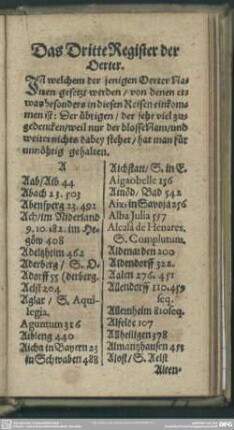 Das Dritte Register der
Oerter.
In welchem der jenigen Oerter Na-
men gesetzt werden / von denen et-
was besonders in diesen Reisen einkom-
men ist: Der übrigen / der sehr viel zu
gedencken / weil nur der blosse Nam / und
weiter nichts dabey stehet / hat man für
unnöhtig gehalten.
A
Aab/Alb 44
Abach 23. 503
Abensperg 23. 492
Ach/im Niderland
9. 10. 182. im He-
göw 408
Adelsheim 462
Aderberg / S. O-
Adorff 55 (derberg.
Aelst 204
Aglar / S. Aqui-
legia.
Aguntum 316
Aibling 440
Aicha in Bayern 23
in Schwaben 488
Aichstatt / S. in E.
Aigaobelle 256
Ainöd / Bad 542
Aix, in Savoja 256
Alba Julia 557
Alcalá de Henares.
S. Complutum.
Aldenarden 200
Aldendorff 322.
Aalen 276. 451
Allendorff 110. 459
seq.
Allenheim 810 seq.
Alfeldt 107
Allheiligen 378
Almanzhausen 453
Alost / S. Aelst
Alten-